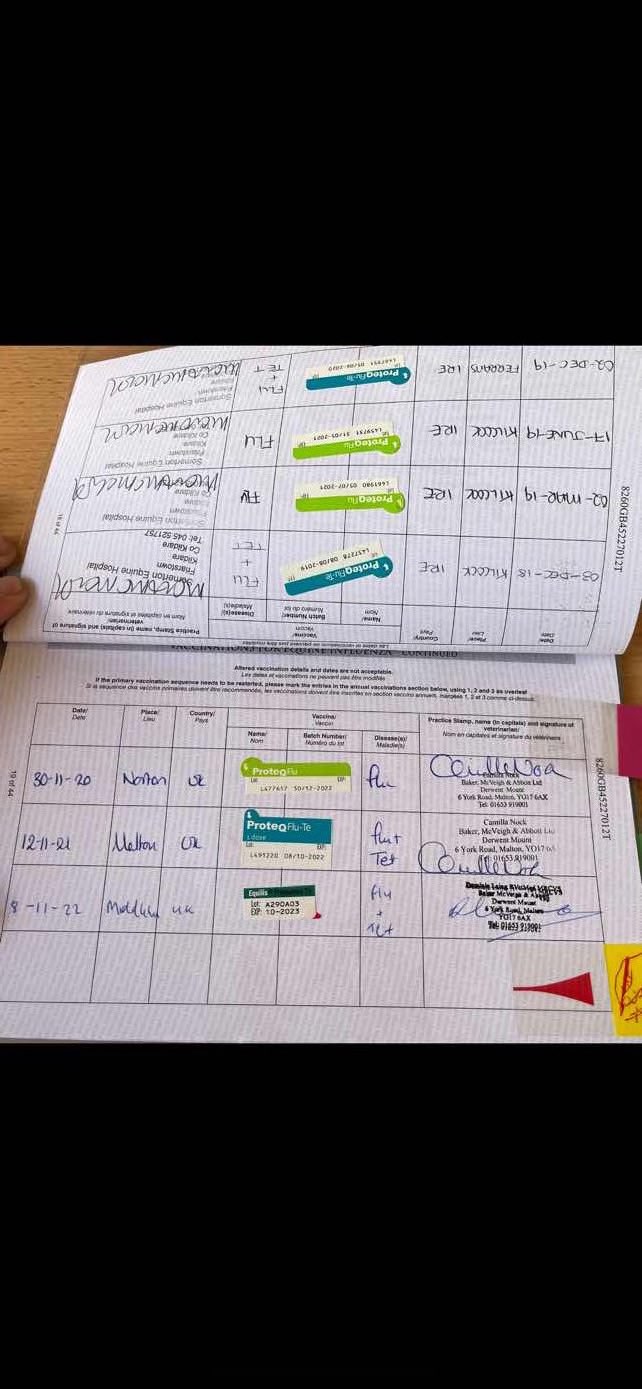 VACCINATIONS FOR EQUINE INFLUENZA CONTINUED
8260GB45227012T
Date/ Date
Place/ Lieu
Country/ Pays
Vaccine/ Vaccin
Name/ Nom
Batch Number/ Numéro du lot
Disease(s)/ Maladie(s)
Practice Stamp, name (in capitals) and signature of veterinarian/
Nom en capitales et signature du vétérinaire
03-DEC-18 KILCOCK IRE
ProteqFlu-Te
L457278 08/08/2019
FLU + TET
Somerton Equine Hospital
Friarstown
Kildare
Co Kildare
Tel: 045 521757
02-MAR-19 KILCOCK IRE
ProteqFlu
L461980 05/07/2021
FLU
Somerton Equine Hospital
Friarstown
Kildare
Co Kildare
17-JUNE-19 KILCOCK IRE
ProteqFlu
L459731 31/05/2021
FLU
Somerton Equine Hospital
Friarstown
Kildare
Co Kildare
02-DEC-19 FERRANS IRE
ProteqFlu-Te
FLU + TET
Somerton Equine Hospital
Friarstown
Kildare
18 of 44
Altered vaccination details and dates are not acceptable.
Les dates et vaccinations ne peuvent pas être modifiés
If the primary vaccination sequence needs to be restarted, please mark the entries in the annual vaccinations section below, using 1, 2 and 3 as overleaf
8260GB45227012T
Date/ Date
Place/ Lieu
Country/ Pays
Vaccine/ Vaccin
Name/ Nom
Batch Number/ Numéro du lot
Disease(s)/ Maladie(s)
Practice Stamp, name (in capitals) and signature of veterinarian/
Nom en capitales et signature du vétérinaire
30-11-20 Norton UK
ProteqFlu
Lot EXP:
L477657 30/12/2022
Flu
Camilla Nock
Baker, McVeigh & Abbott Ltd
Derwent Mount
6 York Road, Malton, YO17 6AX
Tel: 01653 919001
12-11-21 Malton UK
ProteqFlu-Te
1 dose
Lot EXP
L491220 08/10/2022
Flu+
Tet
Camilla Nock
Baker, McVeigh & Abbott Ltd
Derwent Mount
6 York Road, Malton, YO17
Tel: 01653 919001
8-11-22 UK
Equilis
Lot: A290A03
EXP: 10-2023
Flu
+
Tet
Derwent Mount
6 York Road, Malton
YO17 6AX
Tel: 01653 919001
19 of 44